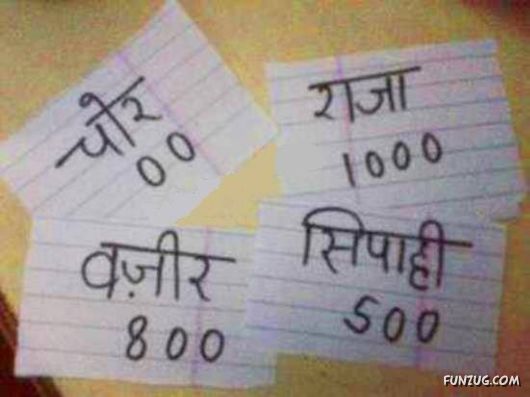 चोर
00
राजा
1000
वज़ीर
800
सिपाही
500
FUNZUG.COM